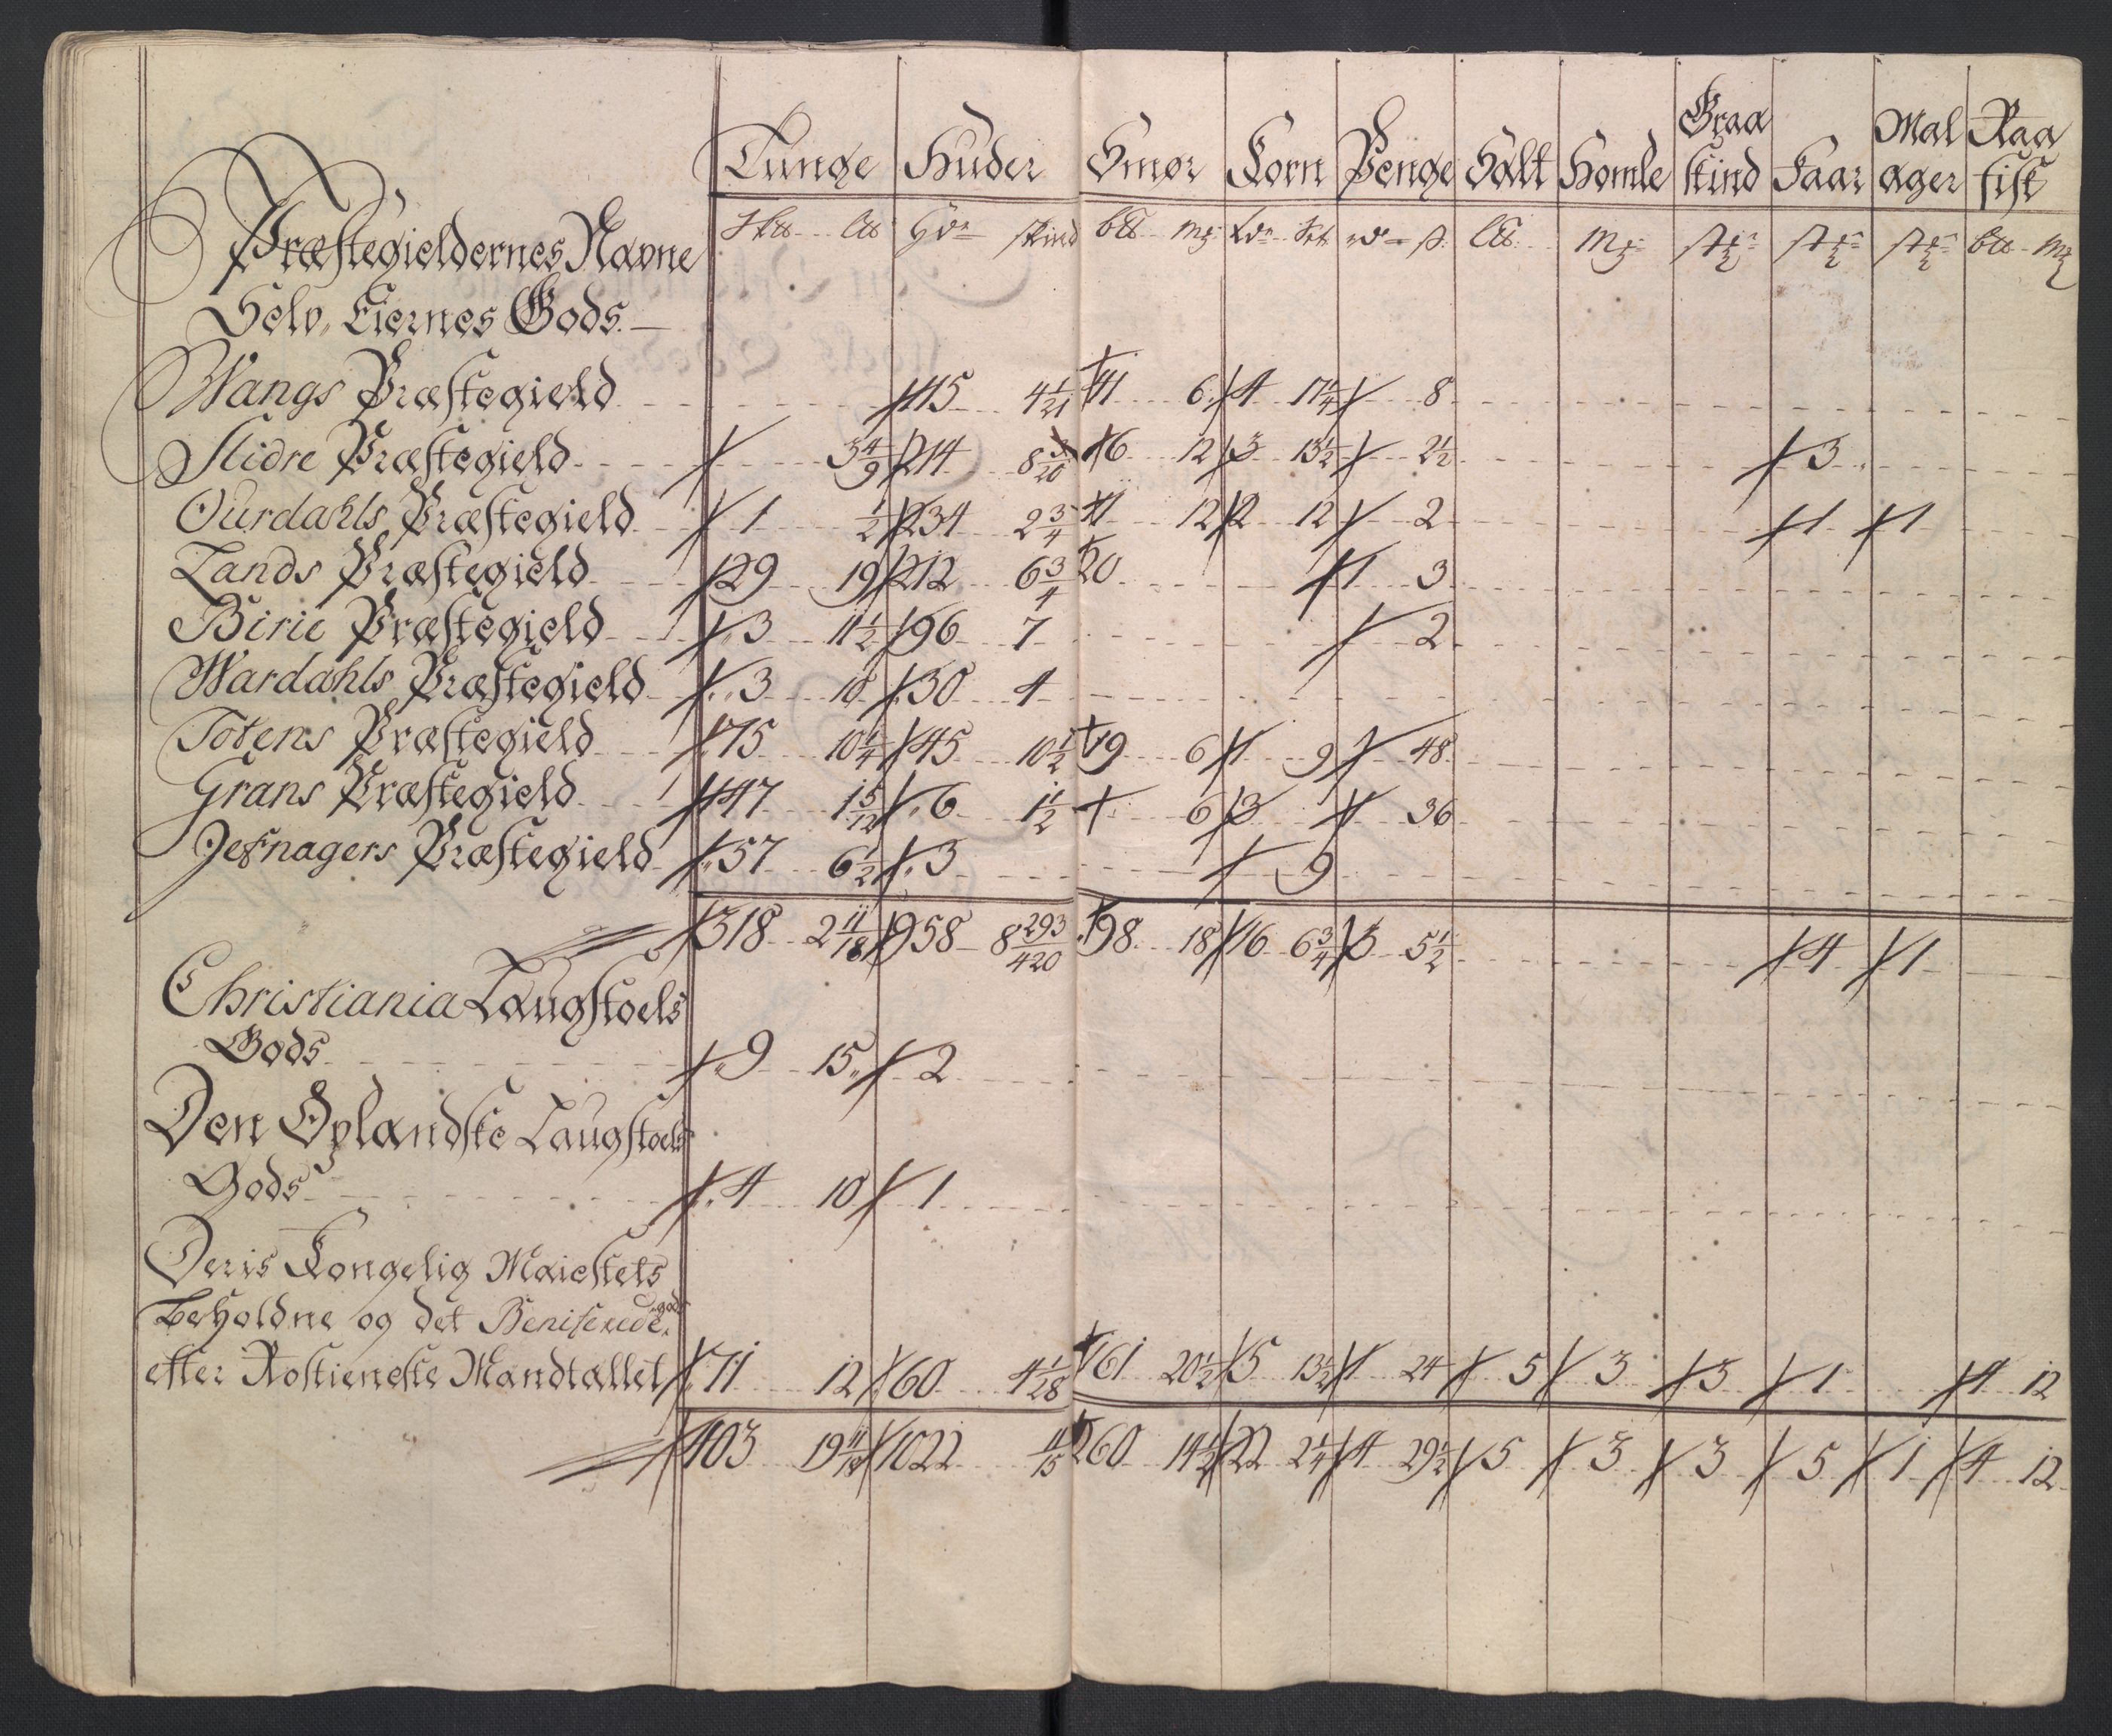 Tunge Huder Smør Korn Penge Salt Homle Graa skind Faar Mal ager Raa fisk
Præstegieldernes Navne
Selv Eiernes Gods.
Wangs Præstegield 115 4 1/21 41 6 4 17 1/4 8
Slidre Præstegield 3 4/9 214 8 3/20 6 12 3 13 1/2 2 1/2 3
Ourdahls Præstegield 1 1/2 234 2 3/4 11 12 2 12 2 1 1
Lands Præstegield 29 19 212 6 3/4 20 1 3
Birie Præstegield 3 11 1/2 96 7 2
Wardahls Præstegield 3 10 30 4
Totens Præstegield 75 10 1/4 45 10 1/2 19 6 1 9 48
Grans Præstegield 147 1 5/12 6 1 1/2 6 3 1 36
Jefnagers Præstegield 57 6 1/2 3 9
318 2 11/18 958 8 293/420 98 18 16 6 3/4 3 5 1/2 4 1
Christiania Laugstoels
Gods 9 15 2
Den Oplandske Laugstoels
Gods 4 10 1
Deris Kongelig Maiestets
beholdne og det Benificerede gods
efter Rostieneste Mandtallet 71 12 60 4 1/28 161 20 1/2 5 13 1/2 1 24 5 3 3 1 4 12
403 19 11/18 1022 11/15 260 14 1/2 22 2 1/4 4 29 1/2 5 3 3 5 1 4 12